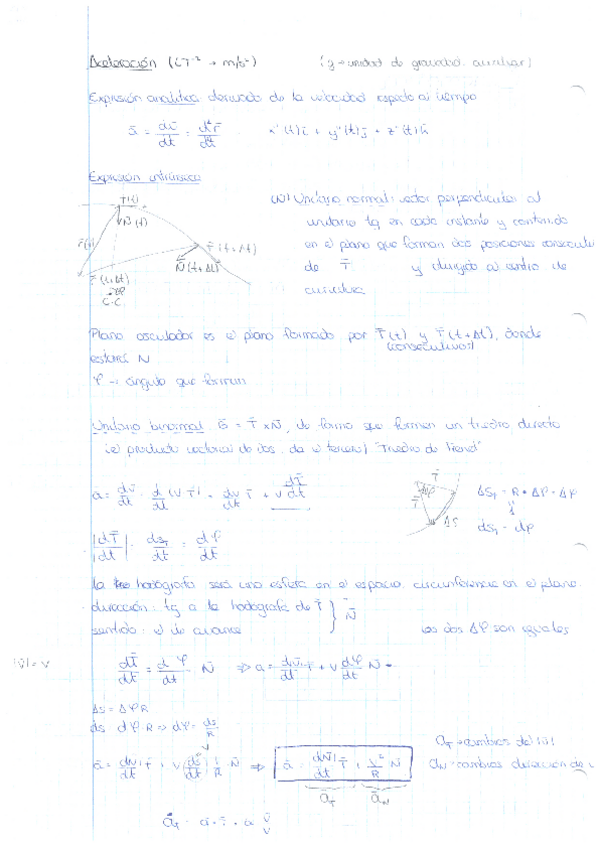 Aceleración (LT⁻² → m/s²) (g → unidad de gravedad. auxiliar)
Expresión analítica derivada de la velocidad respecto al tiempo
ā = dv̄/dt = d²r̄/dt² x''(t)ī + y''(t)j̄ + z''(t)k̄
Expresión intrínseca
T̄(t)
N̄(t)
T̄(t+Δt)
N̄(t+Δt)
r̄(t+Δt)
C.C.
(N̄) Unitario normal: vector perpendicular al
unitario tg en cada instante y contenido
en el plano que forman dos posiciones consecuti
de T̄ y dirigido al centro de
curvatura
Plano osculador es el plano formado por T̄(t) y T̄(t+Δt), donde
(consecutivos)
estará N
φ → ángulo que forman
Unitario binormal B̄ = T̄ × N̄, de forma que formen un triedro directo
(el producto vectorial de dos, da el tercero) "Triedro de Frenet"
ā = dv̄/dt = d/dt (v T̄) = dv/dt T̄ + v dT̄/dt
T̄
Δφ
T̄
ΔS
ΔS₁ = R · Δφ = Δφ
dS₁ = dφ
|dT̄|/|dt| = ds₁/dt = dφ/dt
la hodógrafa será una esfera en el espacio, circunferencia en el plano.
dirección: tg a la hodógrafa de T̄ } N̄
sentido: el de avance
los dos Δφ son iguales
|v̄| = v
dT̄/dt = dφ/dt N̄ ⇒ a = dv/dt T̄ + v dφ/dt N̄
Δs = Δφ R
ds = dφ · R ⇒ dφ = ds/R
ā = d|v̄|/dt T̄ + v (ds/dt) 1/R N̄ ⇒ ā = d|v̄|/dt T̄ + v²/R N̄
ā_T ā_N
a_T → cambios del |v̄|
a_N → cambios dirección de